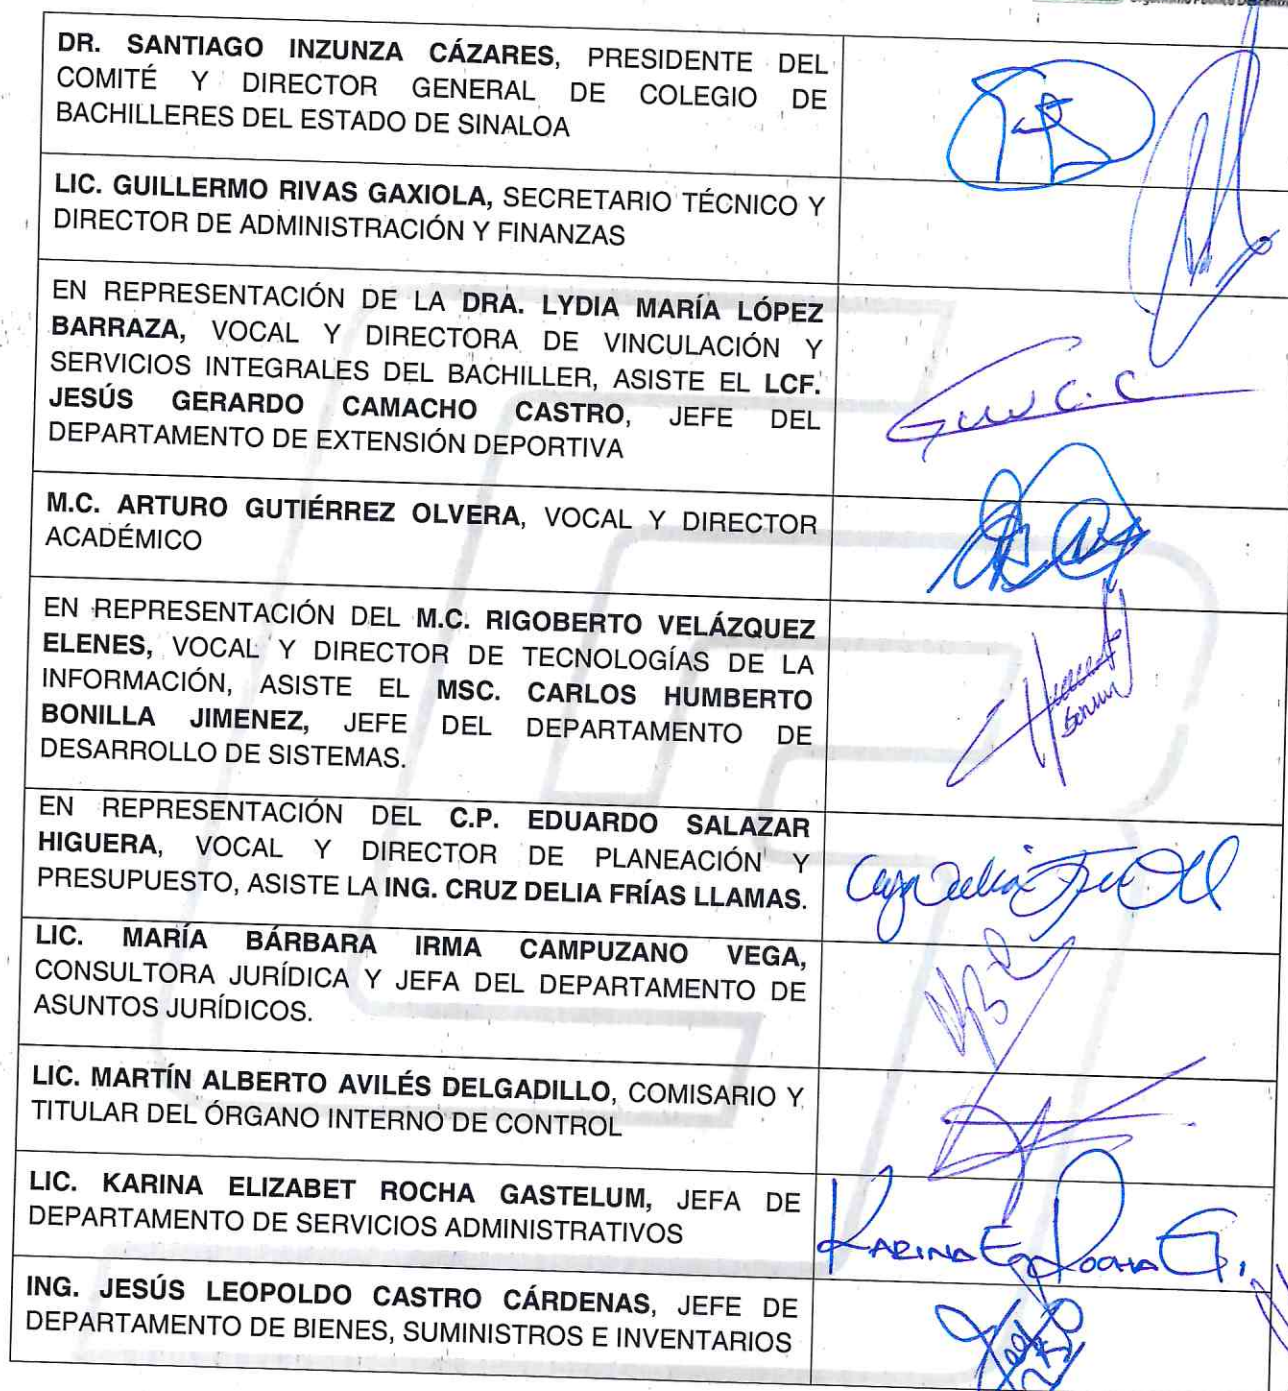 DR. SANTIAGO INZUNZA CÁZARES, PRESIDENTE DEL
COMITÉ Y DIRECTOR GENERAL DE COLEGIO DE
BACHILLERES DEL ESTADO DE SINALOA
LIC. GUILLERMO RIVAS GAXIOLA, SECRETARIO TÉCNICO Y
DIRECTOR DE ADMINISTRACIÓN Y FINANZAS
EN REPRESENTACIÓN DE LA DRA. LYDIA MARÍA LÓPEZ
BARRAZA, VOCAL Y DIRECTORA DE VINCULACIÓN Y
SERVICIOS INTEGRALES DEL BACHILLER, ASISTE EL LCF.
JESÚS GERARDO CAMACHO CASTRO, JEFE DEL
DEPARTAMENTO DE EXTENSIÓN DEPORTIVA
M.C. ARTURO GUTIÉRREZ OLVERA, VOCAL Y DIRECTOR
ACADÉMICO
EN REPRESENTACIÓN DEL M.C. RIGOBERTO VELÁZQUEZ
ELENES, VOCAL Y DIRECTOR DE TECNOLOGÍAS DE LA
INFORMACIÓN, ASISTE EL MSC. CARLOS HUMBERTO
BONILLA JIMENEZ, JEFE DEL DEPARTAMENTO DE
DESARROLLO DE SISTEMAS.
EN REPRESENTACIÓN DEL C.P. EDUARDO SALAZAR
HIGUERA, VOCAL Y DIRECTOR DE PLANEACIÓN Y
PRESUPUESTO, ASISTE LA ING. CRUZ DELIA FRÍAS LLAMAS.
LIC. MARÍA BÁRBARA IRMA CAMPUZANO VEGA,
CONSULTORA JURÍDICA Y JEFA DEL DEPARTAMENTO DE
ASUNTOS JURÍDICOS.
LIC. MARTÍN ALBERTO AVILÉS DELGADILLO, COMISARIO Y
TITULAR DEL ÓRGANO INTERNO DE CONTROL
LIC. KARINA ELIZABET ROCHA GASTELUM, JEFA DE
DEPARTAMENTO DE SERVICIOS ADMINISTRATIVOS
KARINA E ROCHA G.
ING. JESÚS LEOPOLDO CASTRO CÁRDENAS, JEFE DE
DEPARTAMENTO DE BIENES, SUMINISTROS E INVENTARIOS